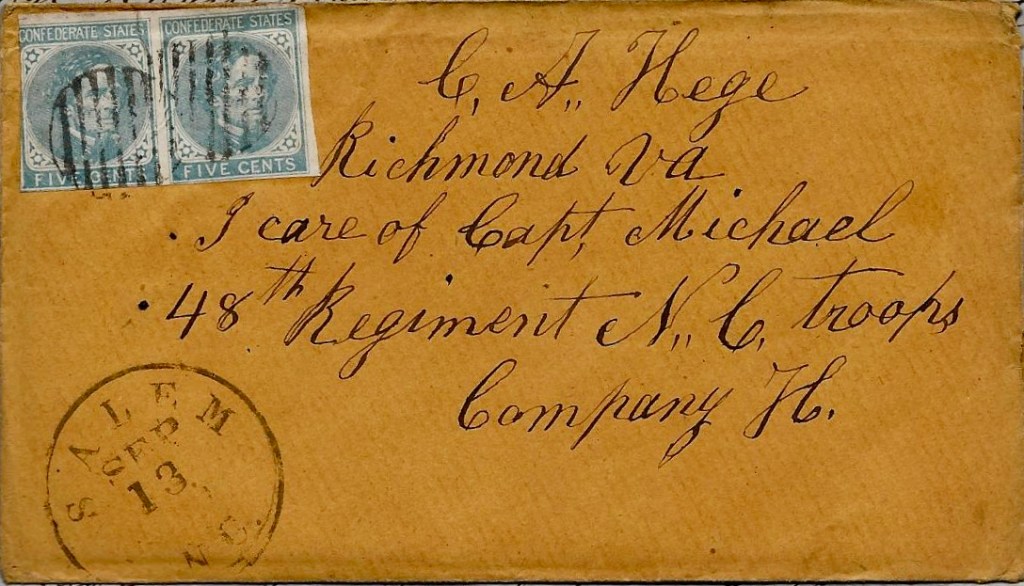 CONFEDERATE STATES
FIVE CENTS
CONFEDERATE STATES
FIVE CENTS
C, A,, Hege
Richmond Va
. I care of Capt, Michael
. 48th Regiment N,, C, troops
Company H.
SALEM
SEP
13
N.C.